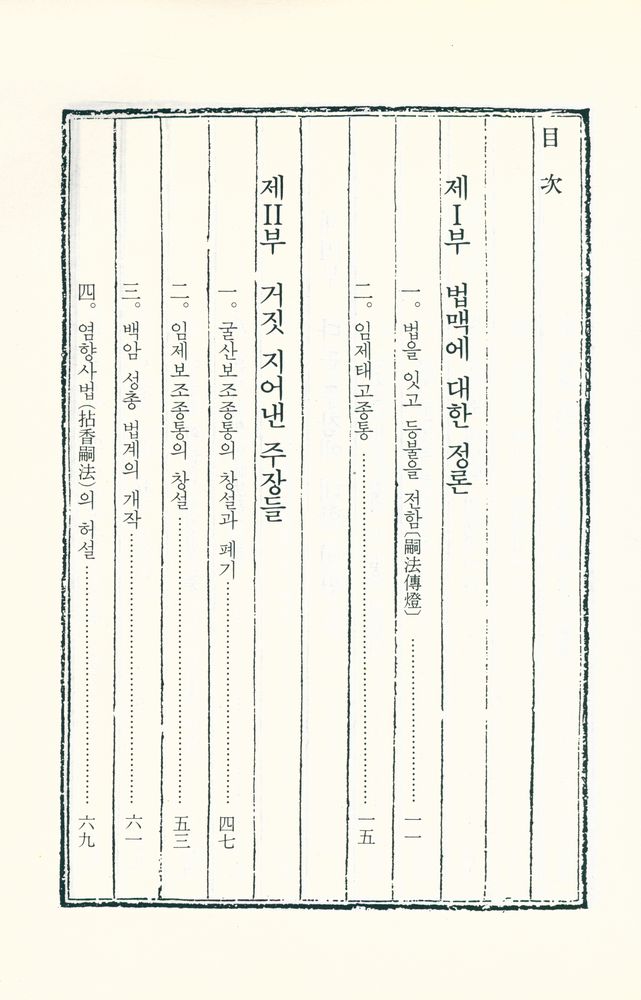 目次
제Ⅰ부 법맥에 대한 정론
一。 법을 잇고 등불을 전함〔嗣法傳燈〕 …… 一一
二。 임제태고종통 …… 一五
제Ⅱ부 거짓 지어낸 주장들
一。 굴산보조종통의 창설과 폐기 …… 四七
二。 임제보조종통의 창설 …… 五三
三。 백암 성총 법계의 개작 …… 六一
四。 염향사법(拈香嗣法)의 허설 …… 六九